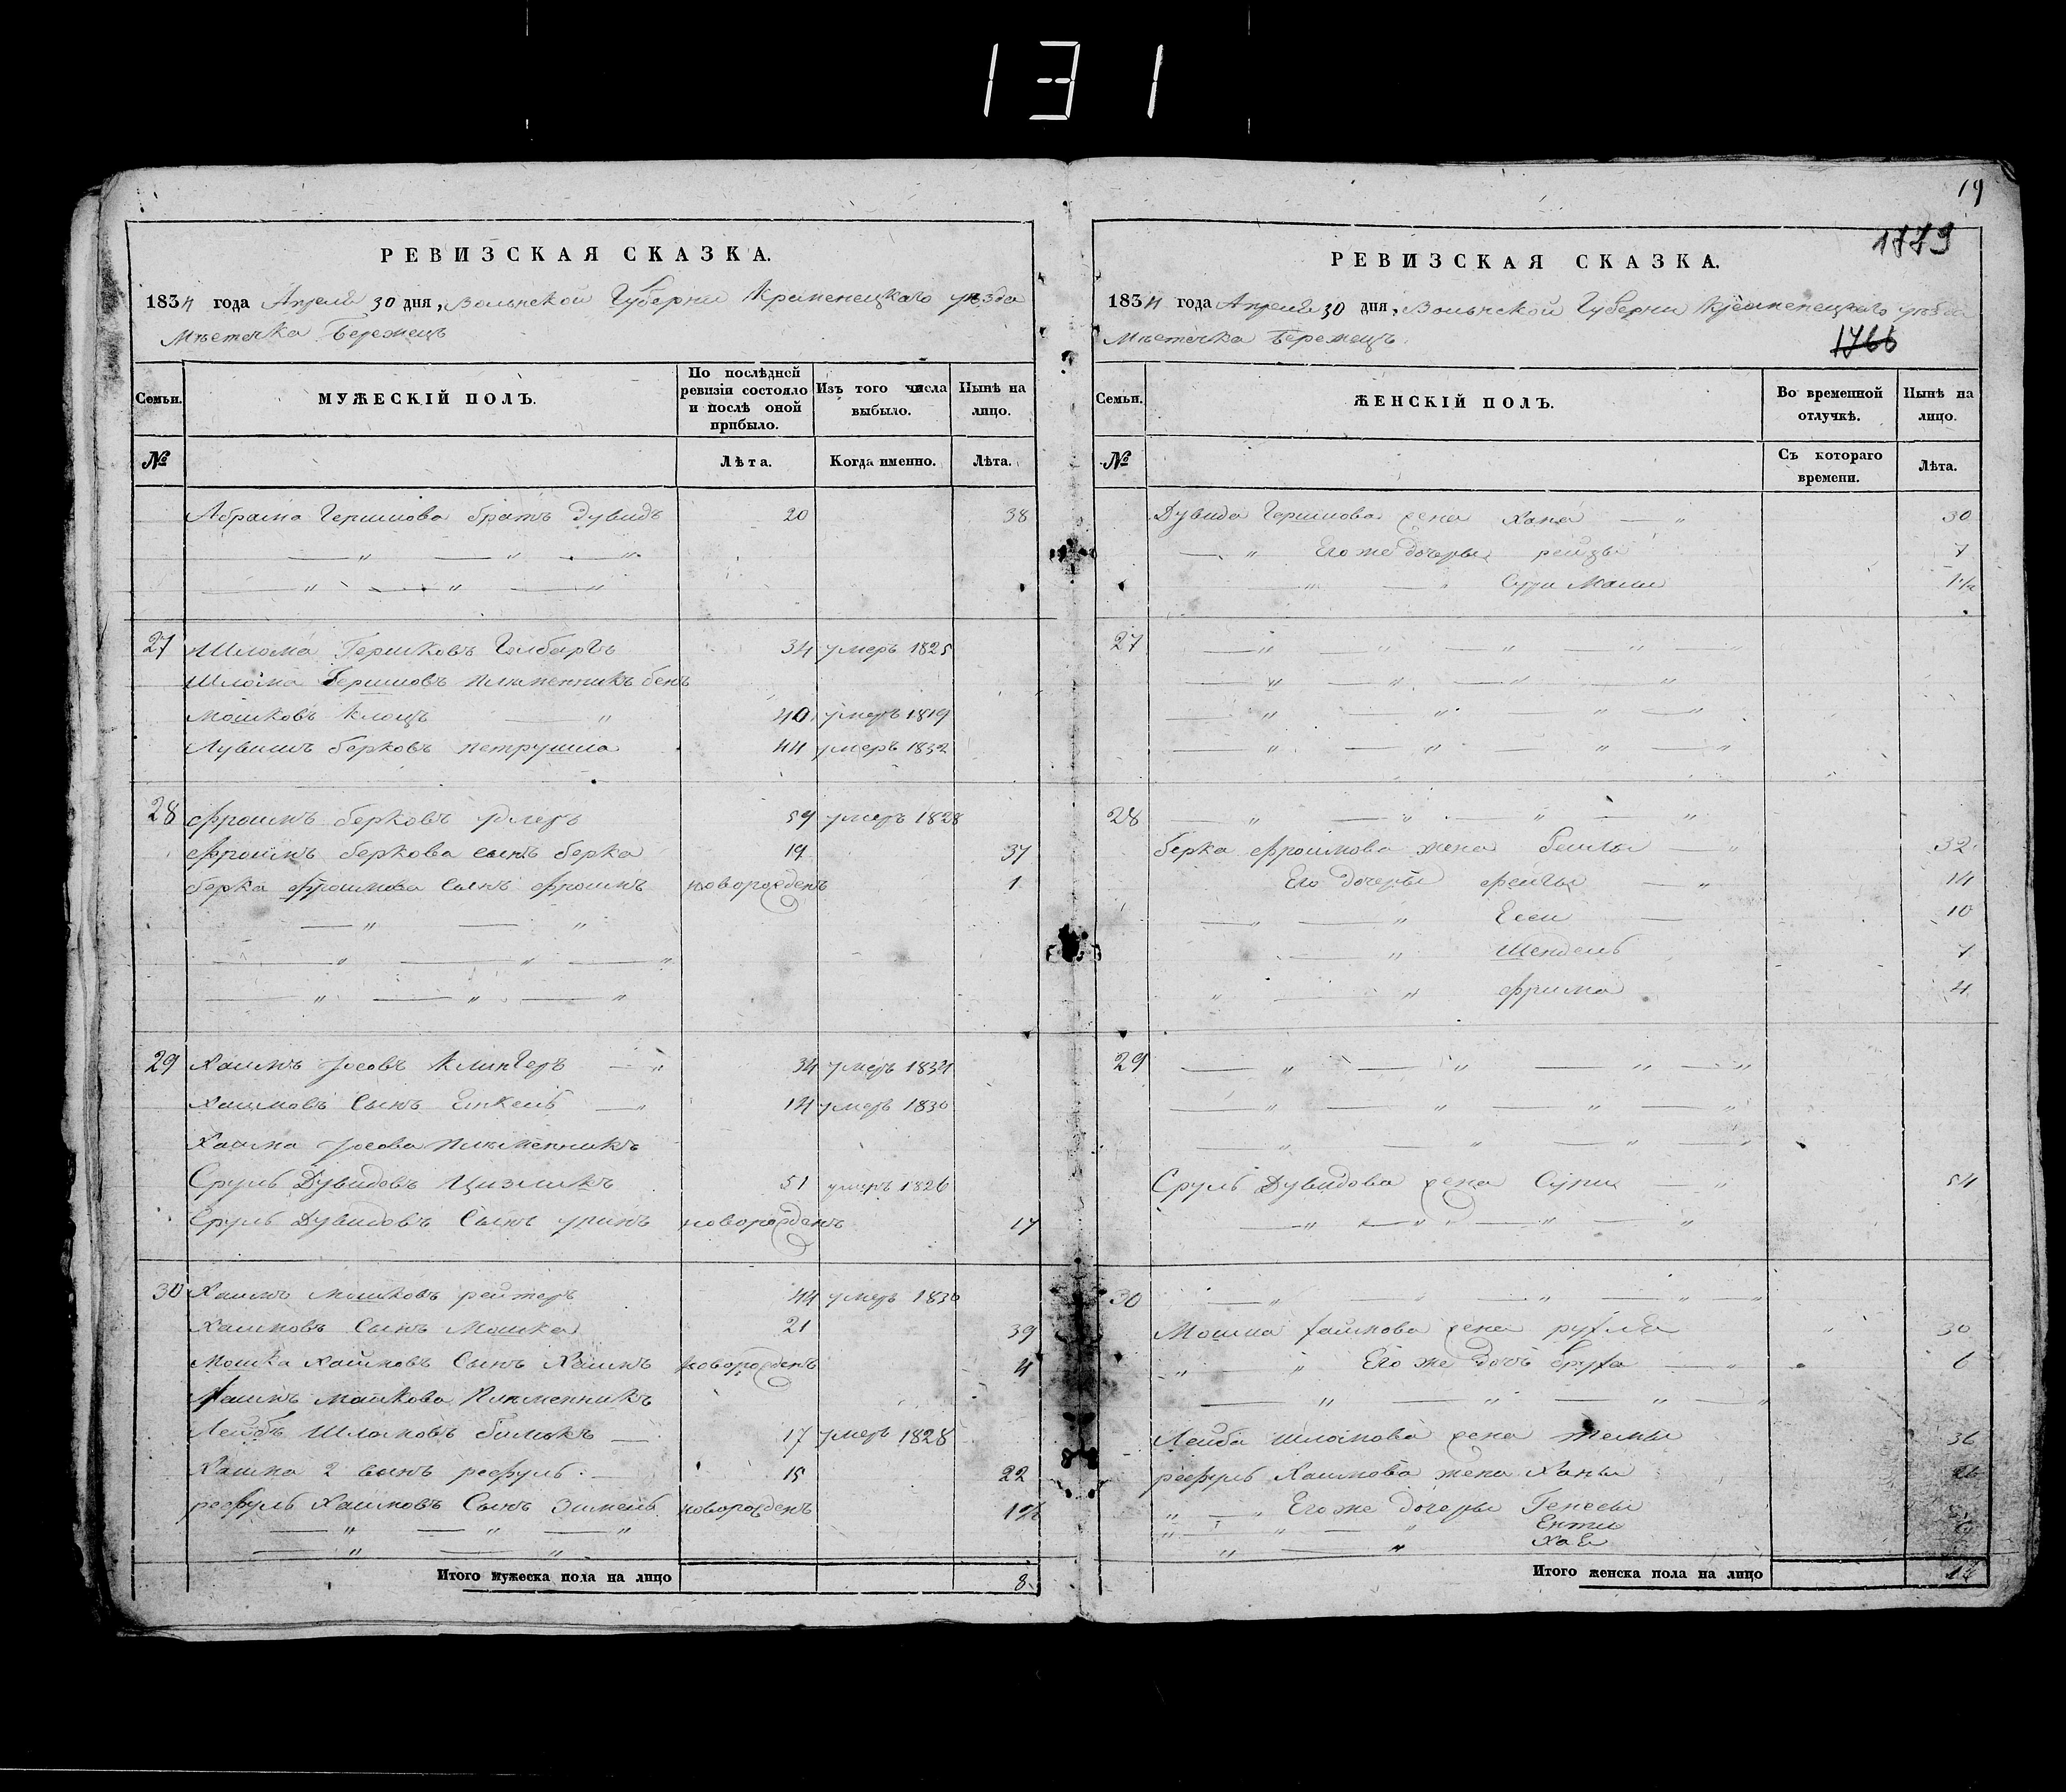 131
РЕВИЗСКАЯ СКАЗКА.
1834 года Апреля 30 дня, Волынской Губернии Кременецкаго уезда
Местечка Бережецъ
Семьи.
МУЖЕСКІЙ ПОЛЪ.
По послѣдней ревизіи состояло и послѣ оной прибыло.
Изъ того числа выбыло.
Нынѣ на лицо.
№
Лѣта.
Когда именно.
Лѣта.
Абрама Гершкова братъ Дувидъ 20 38
27 Шлома Гершковъ 34 умеръ 1825
Шлома Гершковъ племенникъ бенъ
Мошковъ Клоцъ 40 умеръ 1819
Лувишъ берковъ петрушка 44 умеръ 1832
28 Фроимъ берковъ 59 умеръ 1828
Фроимъ беркова сынъ берка 19 37
берка Фроимова Сынъ Фроимъ новорожденъ 1
29 Хаимъ Иосовъ Клингеръ 34 умеръ 1831
Хаимовъ Сынъ 14 умеръ 1830
Хаима Иосова племенникъ
Сруль Дувидовъ Цизликъ 51 умеръ 1826
Сруль Дувидовъ Сынъ новорожденъ 17
30 Хаимъ Мошковъ рейтеръ 44 умеръ 1830
Хаимовъ Сынъ Мошка 21 39
Мошка Хаимовъ Сынъ Хаимъ новорожденъ 4
Хаимъ Мошкова племенникъ
Лейбъ Шломовъ 17 умеръ 1828
Хаима 2 сынъ рефуль 15 22
рефуль Хаимовъ Сынъ новорожденъ
Итого мужеска пола на лицо 8
19
1779
РЕВИЗСКАЯ СКАЗКА.
1834 года Апреля 30 дня, Волынской Губернии Кременецкаго уезда
Местечка Бережецъ
1766
Семьи.
ЖЕНСКІЙ ПОЛЪ.
Во временной отлучкѣ.
Нынѣ на лицо.
№
Съ котораго времени.
Лѣта.
Дувида Гершкова жена Хана 30
Его же дочерьи рейзы 7
Сури Маши 1 1/2
27
28
берка Фроимова жена Бейлы 32
Его дочерьи Фейги 14
Еси 10
Шендель 7
Фрима 4
29
Сруль Дувидова жена 54
30
Мошка Хаимова жена рухля 30
Его же дочь Бруха 6
Лейба Шломова жена 36
рефуль Хаимова жена Ханы
Его же дочерьи Генесы
Енты
Хае
Итого женска пола на лицо